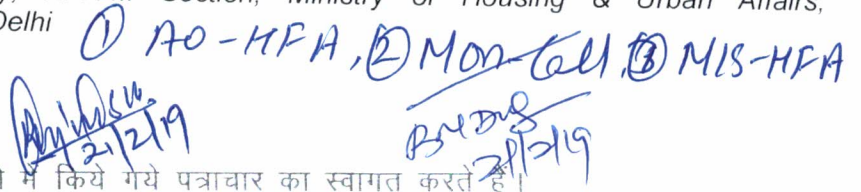 Section, Ministry of Housing & Urban Affairs,
Delhi
① AO-HFA, ② Mon-Cell, ③ MIS-HFA
21/2/19
में किये गये पत्राचार का स्वागत करते हैं।